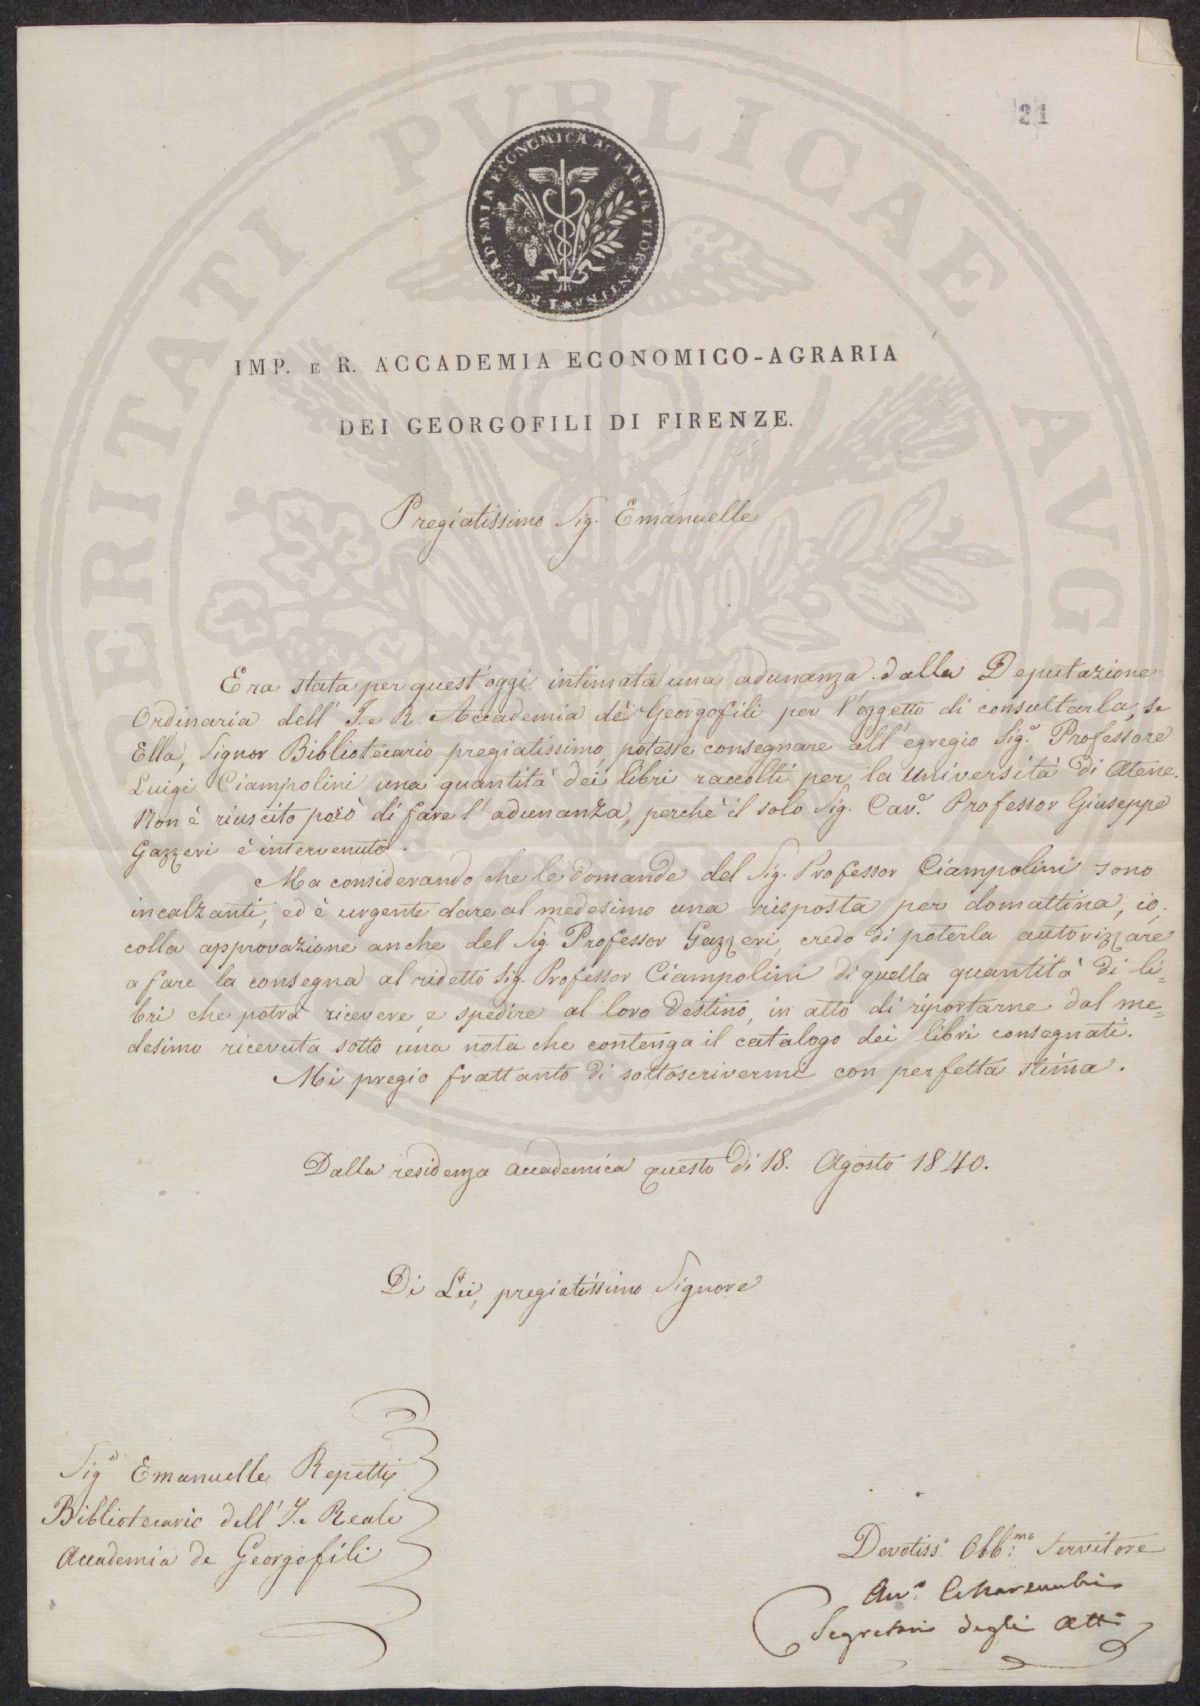 21
I. R. ACCADEMIA ECONOMICA AGRARIA FIORENTINA
IMP. E R. ACCADEMIA ECONOMICO-AGRARIA
DEI GEORGOFILI DI FIRENZE.
Pregiatissimo Sig. Emanuelle
Era stata per quest'oggi intimata una adunanza dalla Deputazione
Ordinaria dell' I. e R. Accademia de' Georgofili per l'oggetto di consultarla, se
Ella, Signor Bibliotecario pregiatissimo, potesse consegnare all'egregio Sig.e Professore
Luigi Ciampolini una quantità dei libri raccolti per la Università di Atene.
Non è riuscito però di fare l'adunanza, perchè il solo Sig. Cav.e Professor Giuseppe
Gazzeri è intervenuto.
Ma considerando che le domande del Sig. Professor Ciampolini sono
incalzanti, ed è urgente dare al medesimo una risposta per domattina, io,
colla approvazione anche del Sig. Professor Gazzeri, credo di poterla autorizzare
a fare la consegna al ridetto Sig. Professor Ciampolini di quella quantità di li=
bri che potrà ricevere e spedire al loro destino, in atto di riportarne dal me=
desimo ricevuta sotto una nota che contenga il catalogo dei libri consegnati.
Mi pregio frattanto di sottoscrivermi con perfetta stima.
Dalla residenza accademica questo dì 18. Agosto 1840.
Di Lei, pregiatissimo Signore
Sig.e Emanuelle Repetti
Bibliotecario dell' I. e Reale
Accademia de Georgofili
Devotiss. Obb.mo Servitore
Segretario degli Atti
PUBLICAE